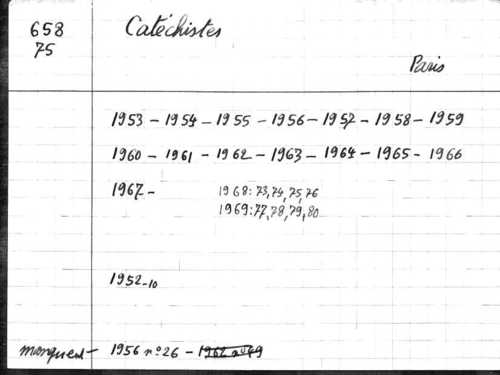 658
75
Catéchistes
Paris
1953 - 1954 - 1955 - 1956 - 1957 - 1958 - 1959
1960 - 1961 - 1962 - 1963 - 1964 - 1965 - 1966
1967 -
1968: 73, 74, 75, 76
1969: 77, 78, 79, 80
1952 - 10
manquent - 1956 n° 26 - 1962 n° 49